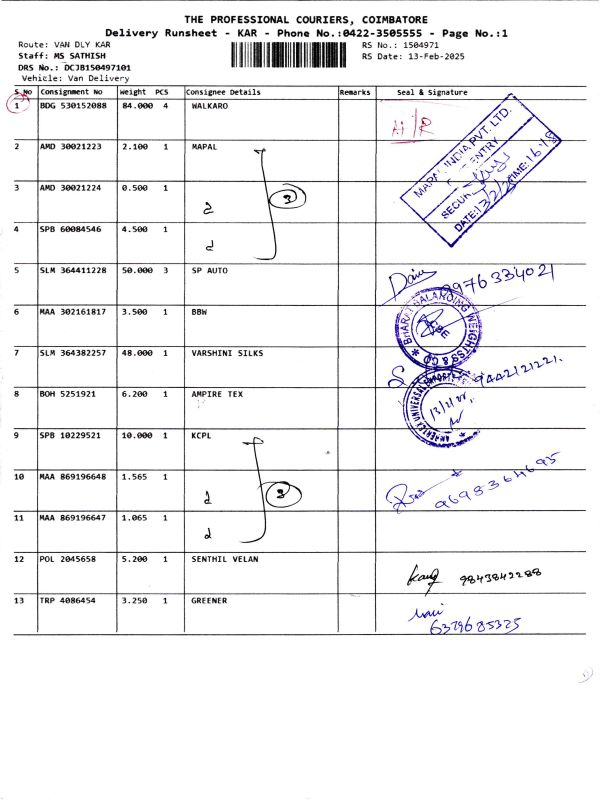 THE PROFESSIONAL COURIERS, COIMBATORE
Delivery Runsheet - KAR - Phone No.:0422-3505555 - Page No.:1
Route: VAN DLY KAR
RS No.: 1504971
Staff: MS SATHISH
RS Date: 13-Feb-2025
DRS No.: DCJB150497101
Vehicle: Van Delivery
S.No Consignment No Weight PCS Consignee Details Remarks Seal & Signature
1 BDG 530152088 84.000 4 WALKARO
2 AMD 30021223 2.100 1 MAPAL
MAPAL INDIA PVT. LTD.
ENTRY
DATE: 13/2/25 TIME: 16:18
3 AMD 30021224 0.500 1
3
4 SPB 60084546 4.500 1
5 SLM 364411228 50.000 3 SP AUTO
8976334021
6 MAA 302161817 3.500 1 BBW
BHARAT BALANCING WEIGHTSS & CO
7 SLM 364382257 48.000 1 VARSHINI SILKS
9442121221
8 BOH 5251921 6.200 1 AMPIRE TEX
9 SPB 10229521 10.000 1 KCPL
10 MAA 869196648 1.565 1
3
9698364695
11 MAA 869196647 1.065 1
12 POL 2045658 5.200 1 SENTHIL VELAN
9843842288
13 TRP 4086454 3.250 1 GREENER
6379685325